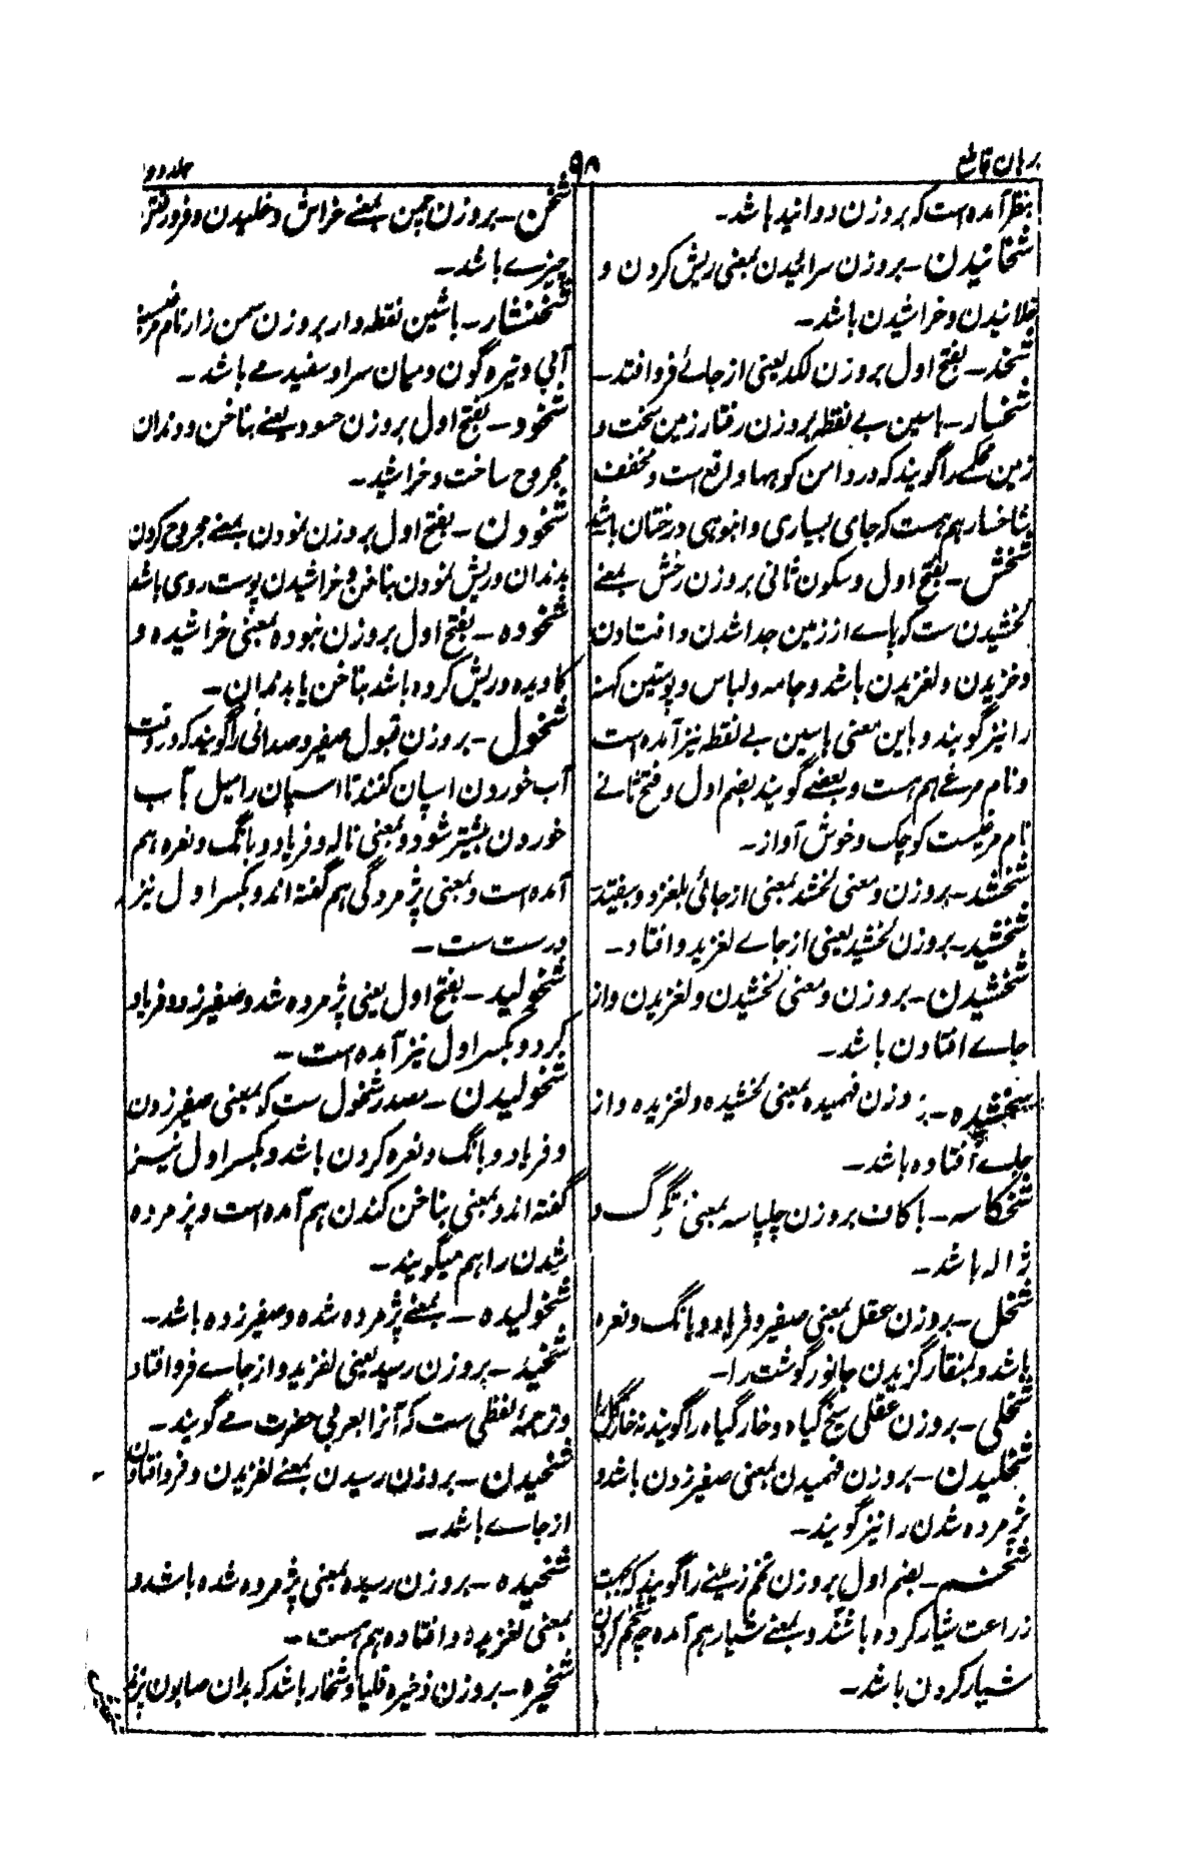 برهان قاطع
۹۸
جلد دو
بنظر آمده است که بروزن دوانید باشد۔
شخانیدن۔ بروزن سرائیدن بمعنی ریش کردن و
خلانیدن و خراشیدن باشد۔
شخد۔ بفتح اول بروزن لکد یعنی از جائے فروافتد۔
شخسار۔ باسین بے نقطه بروزن رفتار زمین سخت و
زمین محکمے را گویند که در دامن کوهها واقع است و مخفف
شاخسار هم هست که جای بسیاری و انبوهی درختان باشد
شخش۔ بفتح اول و سکون ثانی بروزن رخش بمعنے
لخشیدن ست که پاے از زمین جدا شدن و افتادن
و خزیدن و لغزیدن باشد و جامه و لباس و پوستین کهنه
را نیز گویند و باین معنی باسین بے نقطه نیز آمده است
و نام مرغے هم هست و بعضے گویند بضم اول و فتح ثانے
نام مرغیست کوچک و خوش آواز۔
شخشد۔ بروزن و معنی لخشد بمعنی از جائی بلغزد و بیفتد
شخشید۔ بروزن لخشید یعنی از جاے لغزید و افتاد۔
شخشیدن۔ بروزن و معنی لخشیدن و لغزیدن و از
جاے افتادن باشد۔
شخشیده۔ بروزن فهمیده بمعنی لخشیده و لغزیده و از
جاے افتاده باشد۔
شخکاسه۔ با کاف بروزن چلپاسه بمعنی تگرگ و
ژاله باشد۔
شخل۔ بروزن عقل بمعنی صفیر و فریاد و بانگ و نعره
باشد و بمنقار گزیدن جانور گوشت را۔
شخلی۔ بروزن عقلی بیخ گیاه و خار گیاه را گویند نه خار گل را
شخلیدن۔ بروزن فهمیدن بمعنی صفیر زدن باشد و
پژمرده شدن را نیز گویند۔
شخم۔ بضم اول بروزن تخم زمینے را گویند که بجهت
زراعت شیار کرده باشند و بمعنے شیار هم آمده چه شخم کردن
شیار کردن باشد۔
شخن۔ بروزن چمن بمعنے خراش و خلیدن و فرورفتن
چیزے باشد۔
شخنشار۔ باشین نقطه دار بروزن سمن زار نام مرغیست
آبی و تیره گون و میان سر او سفید مے باشد۔
شخود۔ بفتح اول بروزن حسود یعنے بناخن و دندان
مجروح ساخت و خراشید۔
شخودن۔ بفتح اول بروزن نمودن بمعنے مجروح کردن
بدندان و ریش نمودن بناخن و خراشیدن پوست روی باشد
شخوده۔ بفتح اول بروزن نبوده بمعنی خراشیده و
کاویده و ریش کرده باشد بناخن یا بدندان۔
شخول۔ بروزن قبول صفیر و صدائی را گویند که در وقت
آب خوردن اسپان کنند تا اسپان را میل آب
خوردن بیشتر شود و بمعنی ناله و فریاد و بانگ و نعره هم
آمده است و بمعنی پژمردگی هم گفته اند و بکسر اول نیز
درست ست۔
شخولید۔ بفتح اول یعنی پژمرده شد و صفیر زد و فریاد
کرد و بکسر اول نیز آمده است۔
شخولیدن۔ مصدر شخول ست که بمعنی صفیر زدن
و فریاد و بانگ و نعره کردن باشد و بکسر اول نیز
گفته اند و بمعنی بناخن کندن هم آمده است و پژمرده
شدن را هم میگویند۔
شخولیده۔ بمعنے پژمرده شده و صفیر زده باشد۔
شخید۔ بروزن رسید یعنی لغزید و از جاے فروافتاد
و ترجمهٔ لفظی ست که آنرا بعربی حضرت مے گویند۔
شخیدن۔ بروزن رسیدن بمعنے لغزیدن و فروافتادن
از جاے باشد۔
شخیده۔ بروزن رسیده بمعنی پژمرده شده باشد و
بمعنی لغزیده و افتاده هم هست۔
شخیره۔ بروزن ذخیره قلیا و شخار باشد که بدان صابون پزند